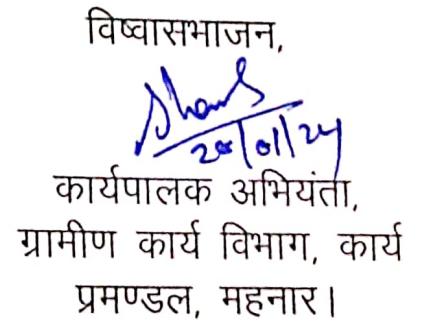 विष्वासभाजन,
कार्यपालक अभियंता,
ग्रामीण कार्य विभाग, कार्य
प्रमण्डल, महनार।